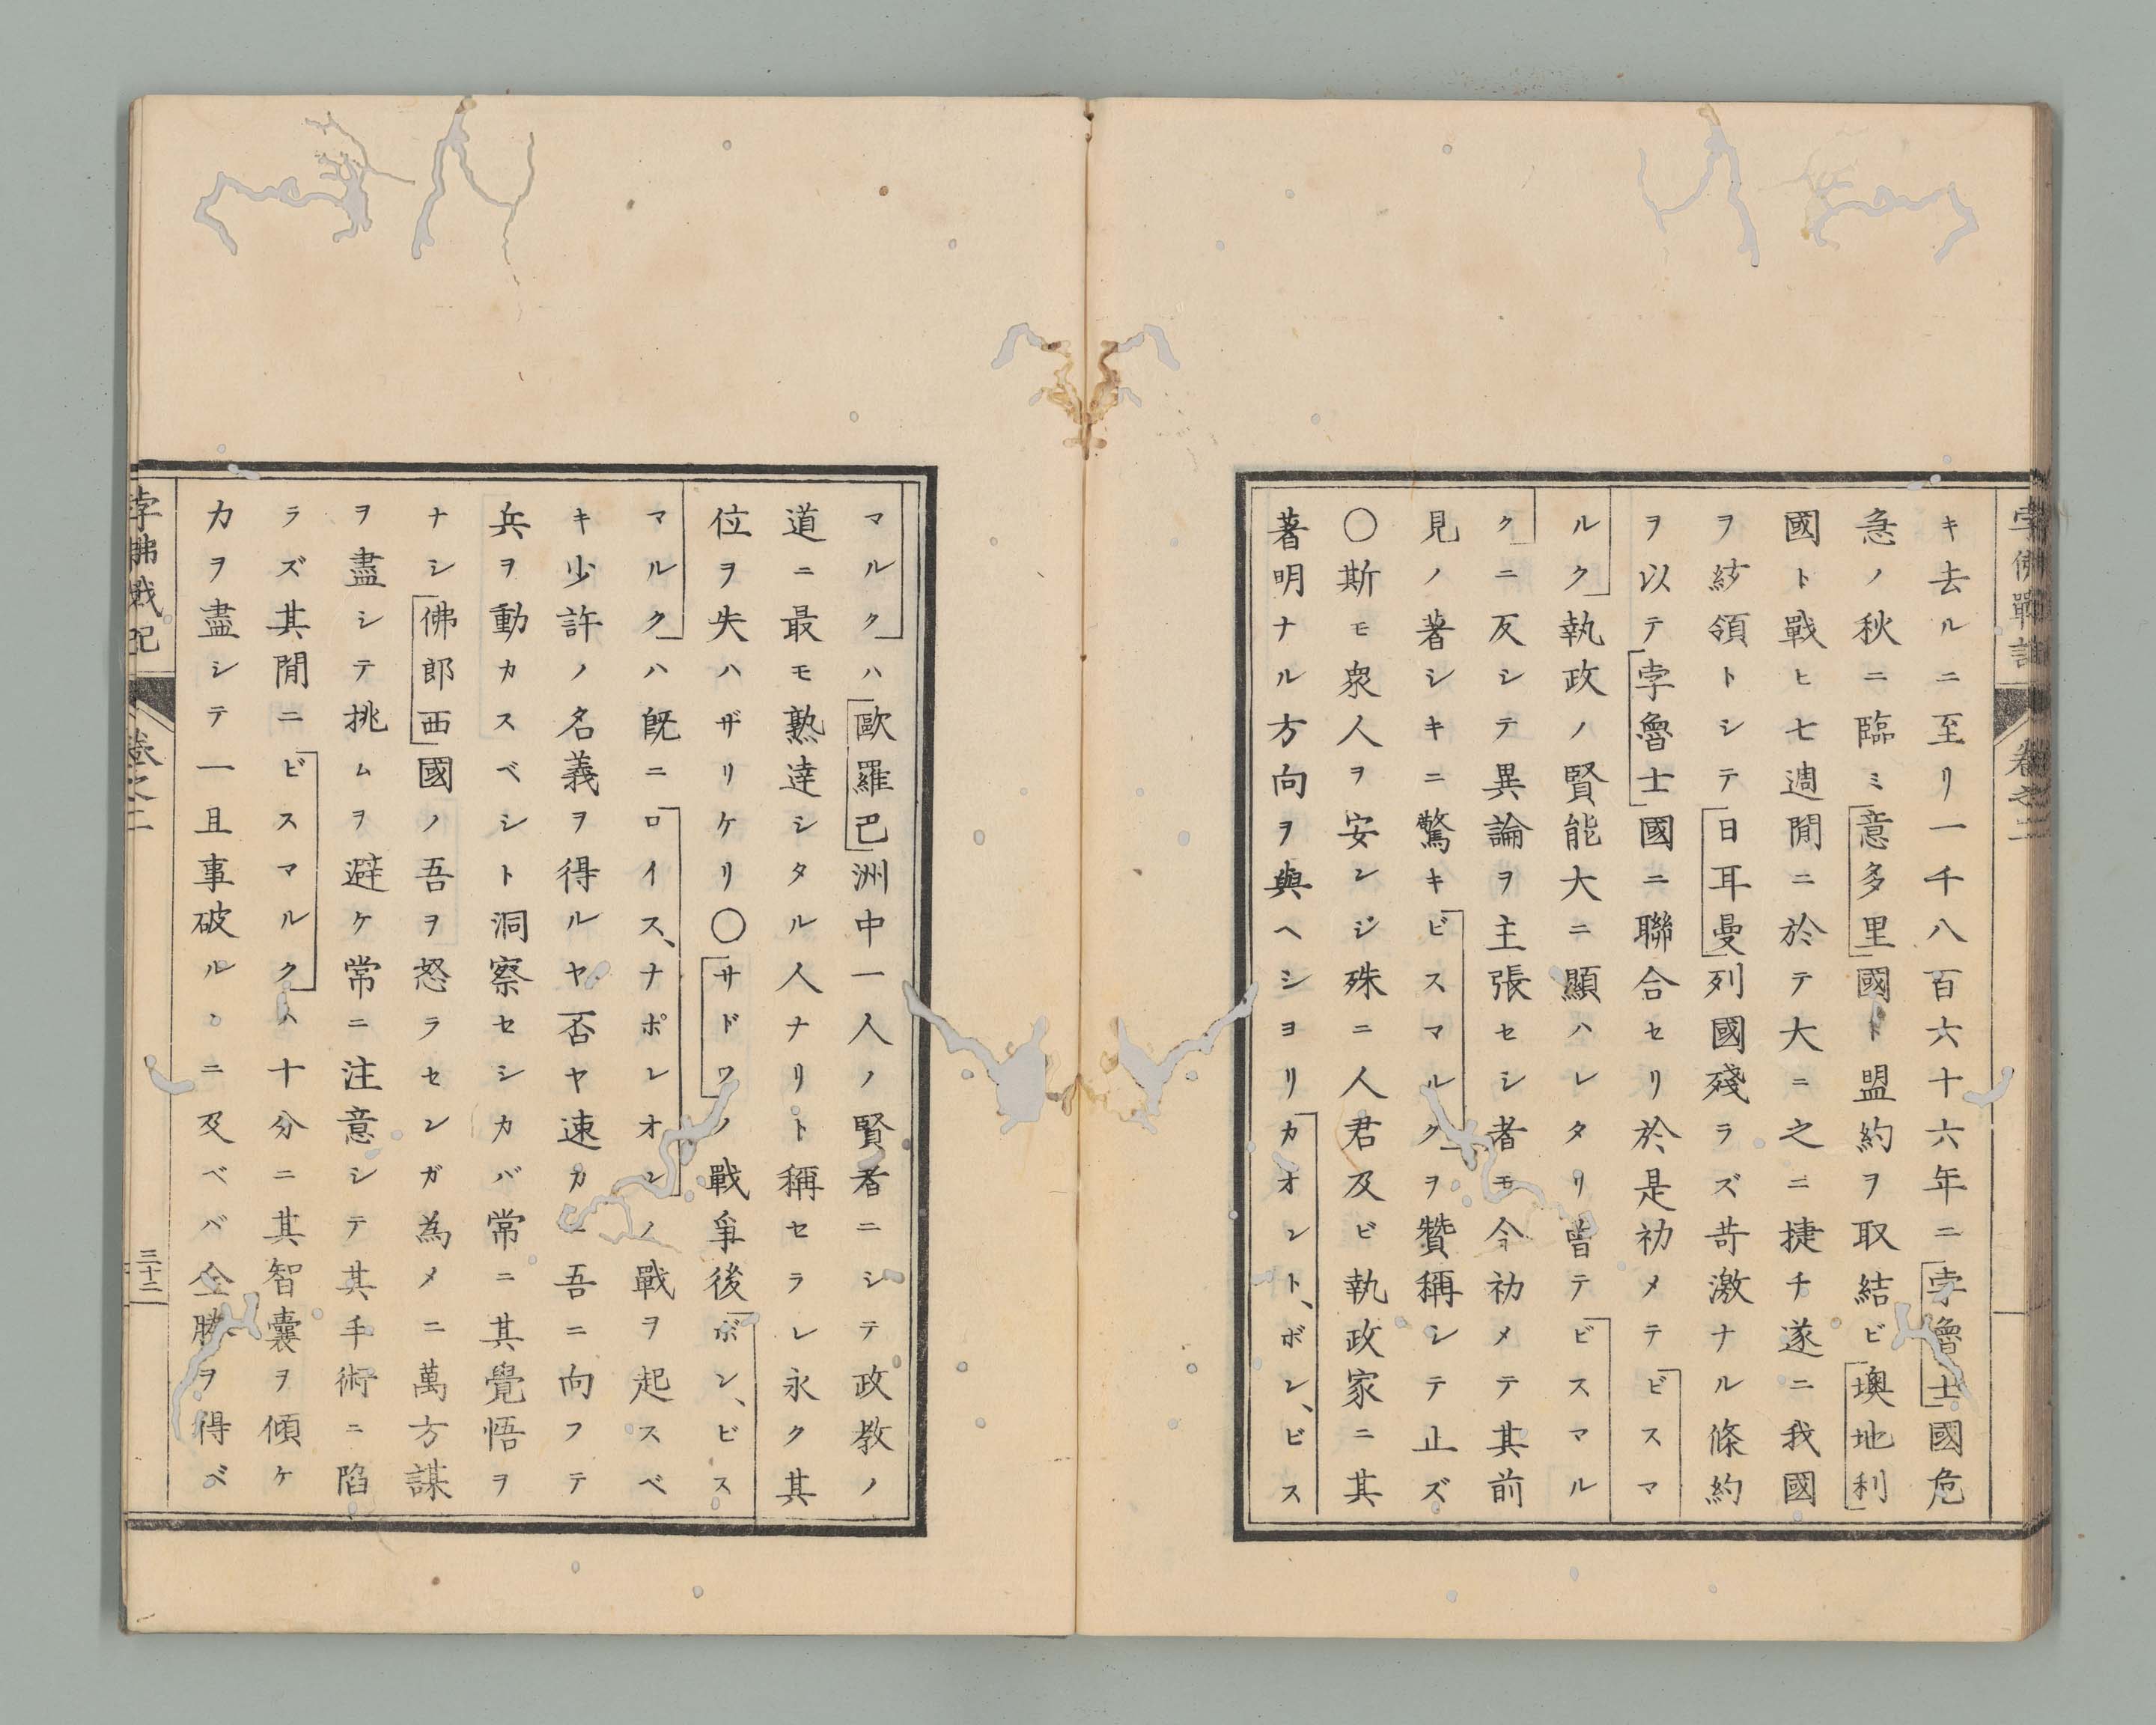 孛佛戰記
卷之二
キ去ルニ至リ一千八百六十六年ニ孛魯士國危
急ノ秋ニ臨ミ意多里國ト盟約ヲ取結ビ墺地利
國ト戰ヒ七週間ニ於テ大ニ之ニ捷チ遂ニ我國
ヲ紡領トシテ日耳曼列國殘ラズ苛激ナル條約
ヲ以テ孛魯士國ニ聯合セリ於是初メテビスマ
ルク執政ノ賢能大ニ顯ハレタリ曾テビスマル
クニ反シテ異論ヲ主張セシ者モ今初メテ其前
見ノ著シキニ驚キビスマルクヲ贊稱シテ止ズ
〇斯モ衆人ヲ安ンジ殊ニ人君及ビ執政家ニ其
著明ナル方向ヲ與ヘシヨリカオント、ボン、ビス
マルクハ歐羅巴洲中一人ノ賢者ニシテ政教ノ
道ニ最モ熟達シタル人ナリト稱セラレ永ク其
位ヲ失ハザリケリ〇サドワノ戰爭後ボン、ビス
マルクハ既ニロイス、ナポレオンノ戰ヲ起スベ
キ少許ノ名義ヲ得ルヤ否ヤ速カニ吾ニ向フテ
兵ヲ動カスベシト洞察セシカバ常ニ其覺悟ヲ
ナシ佛郎西國ノ吾ヲ怒ラセンガ為メニ萬方謀
ヲ盡シテ挑ムヲ避ケ常ニ注意シテ其手術ニ陷
ラズ其間ニビスマルクハ十分ニ其智囊ヲ傾ケ
力ヲ盡シテ一且事破ルヽニ及ベバ全勝ヲ得ベ
孛佛戰記
卷之二
三十二